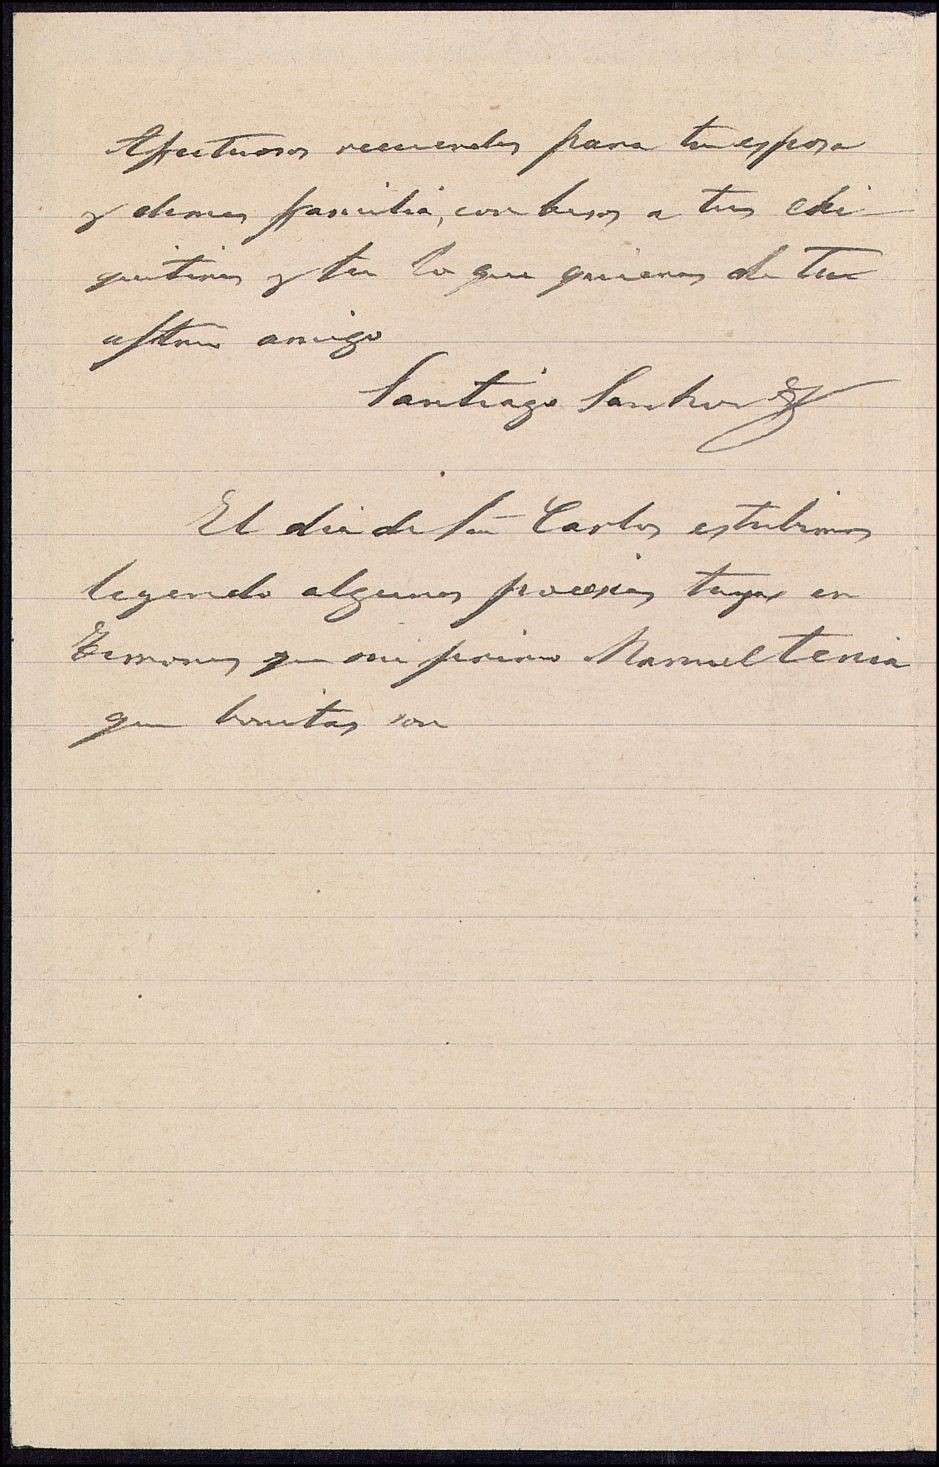 Afectuosos recuerdos para tu esposa
y demas familia, con besos a tus chi-
quitines y tu lo que quieras de tu
aftmo amigo
Santiago Sanchez
El dia de San Carlos estubimos
leyendo algunas poesias tuyas en
que mi primo Manuel tenia
que bonitas son